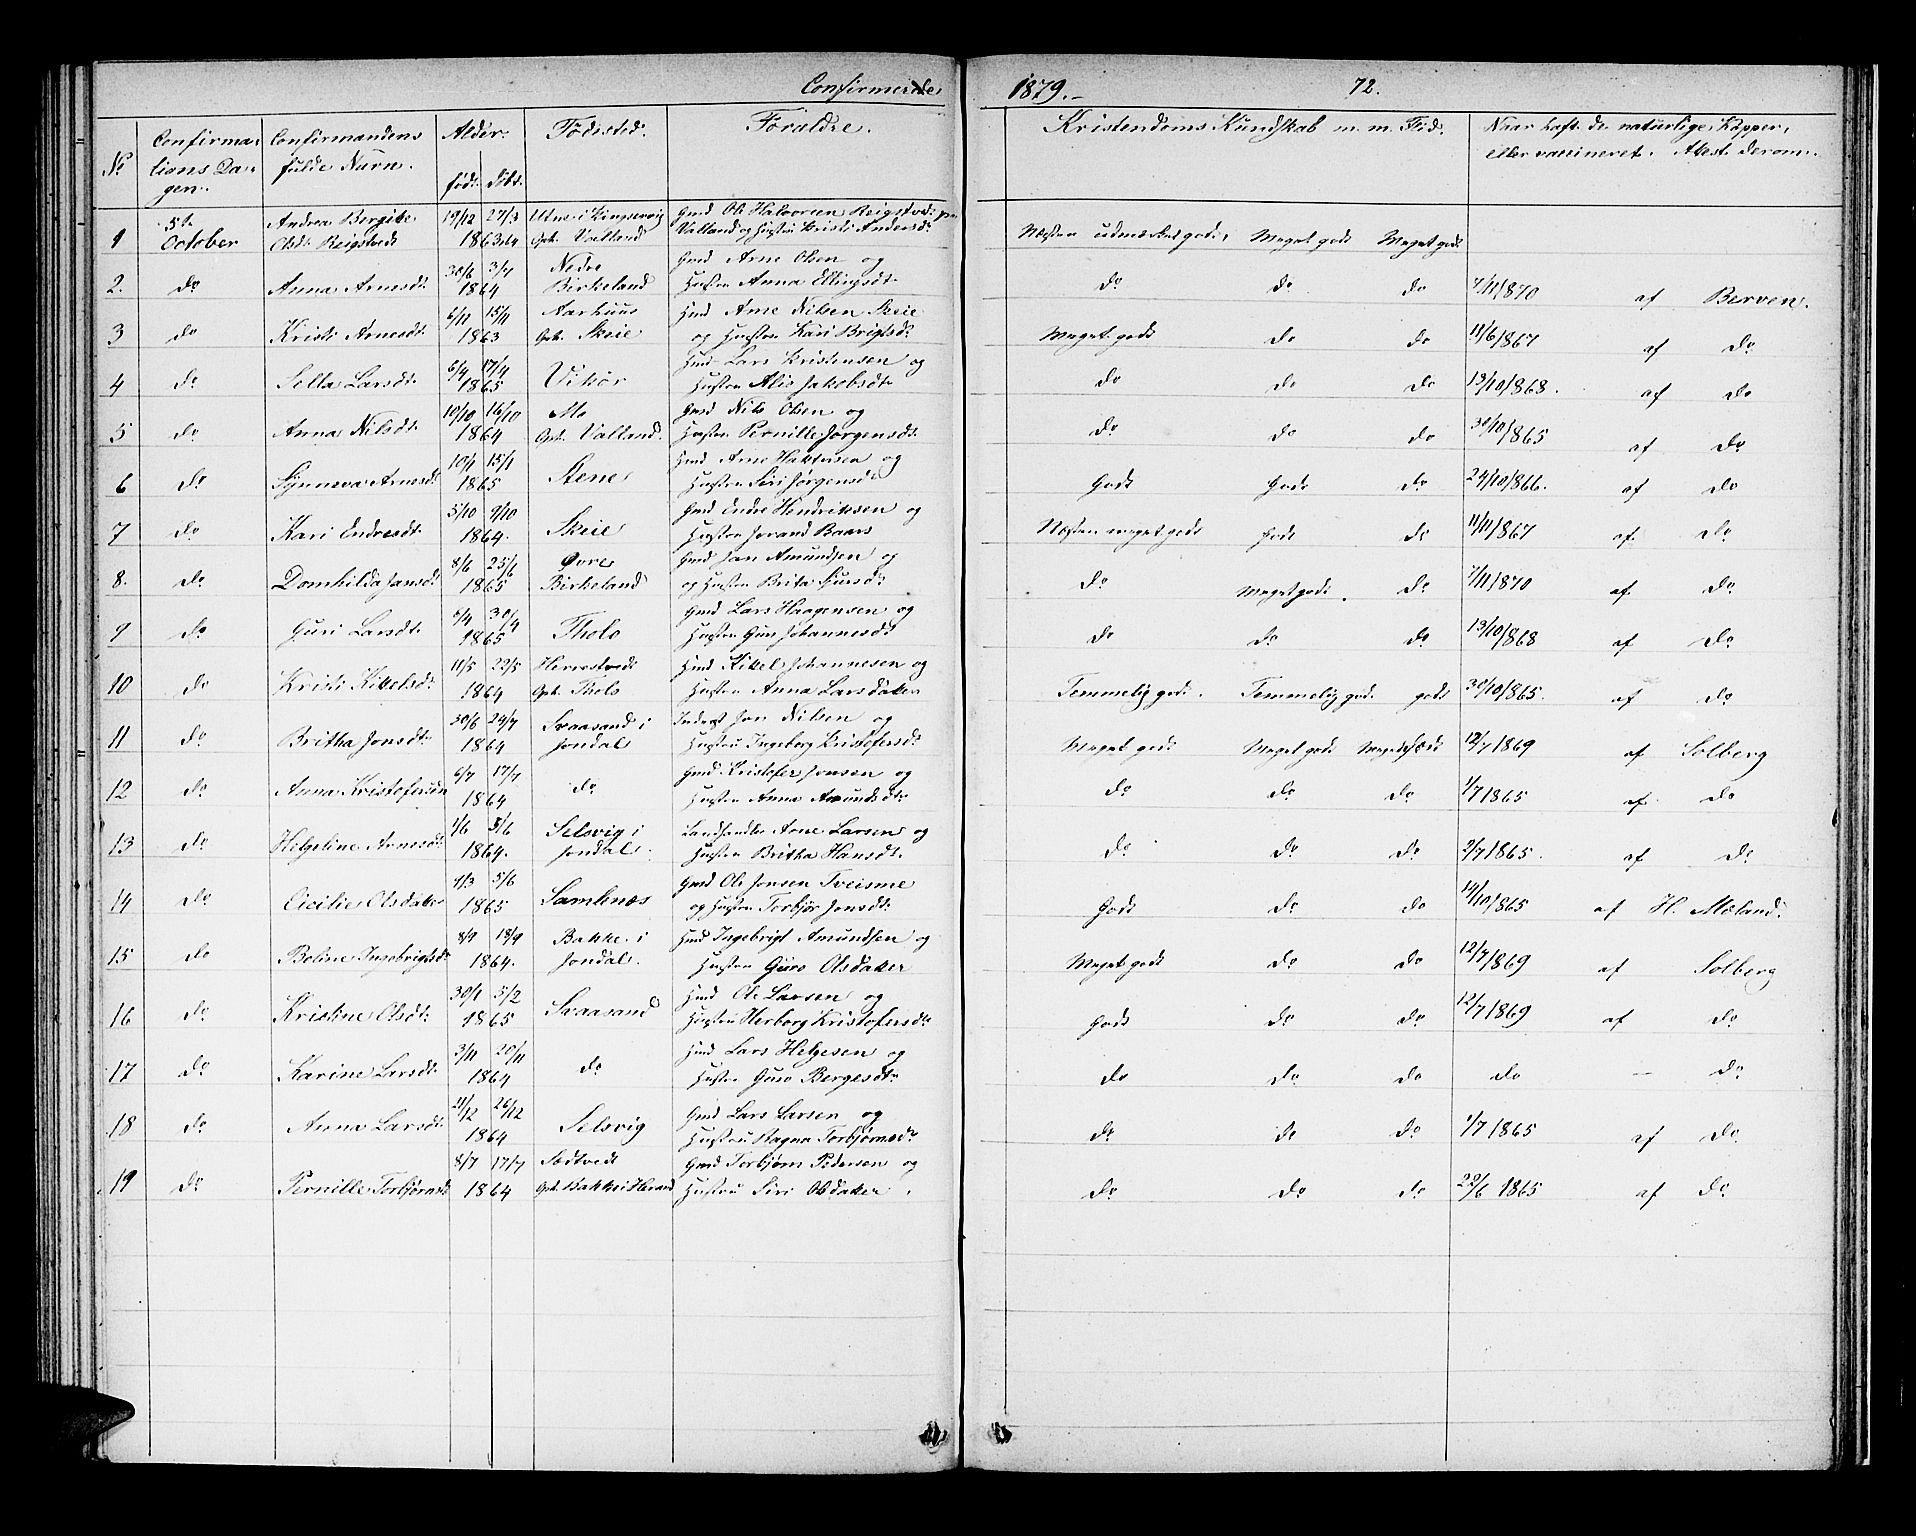 Confirmerede
1879.-
72.
No
Confirma-
tions Da-
gen.
Confirmandens
fulde Navn.
Alder.
født. Døbt.
Fødested.
Forældre.
Kristendoms Kundskab m. m. Flid.
Naar haft de naturlige Kopper,
eller vaccineret. Atest derom.
1
5te
October
Andrea Bergitte
Olsdt. Reigstvedt
19/12 27/3
1863.64
Utne i Kingservig
Oph. Valland
Gmd Ole Halvorsen Reigstvedt
Valland og Hustru Kristi Andersdt.
Næsten udmærket godt, Meget godt Meget godt
2. do Anna Arnesdt. 30/6 3/7
1864
Nedre
Birkeland
Gmd Arne Olsen og
Hustru Anna Ellingsdt.
do do. do 7/11 1870 af Berven.
3 do Kristi Arnesdt. 6/11 15/11
1863
Aarhuus
Oph. Skeie
Hmd Arne Nilsen Skeie
og Hustru Kari Brigtsdt.
Meget godt do do 11/6 1867 af do
4 do Sella Larsdt. 6/4 17/4
1865
Vikør
Hmd Lars Kristensen og
Hustru Alis Jakobsdt.
do do do 13/10 1868. af do
5 do Anna Nilsdt. 10/10 16/10
1864
Mo
Oph. Valland.
Gmd Nils Olsen og
Hustru Pernille Jørgensdt.
do do do 30/10 1865 af do
6 do Synneva Arnesdt 10/1 15/1
1865
Stene
Hmd Arne
og
Hustru Siri Jørgensdt
Godt Godt do 24/10 1866. af do
7 do Kari Endresdt. 5/10 9/10
1864.
Skeie
Gmd Endre Hendriksen og
Hustru Jorand Baars
Næsten meget godt Godt do 11/11 1867 af do
8. do Domhilda Jansdt 8/6 25/6
1865
Øvre
Birkeland
Gmd Jan Amundsen og
og Hustru Brita
do Meget godt. do 7/11 1870 af do
9 do Guri Larsdt. 6/4 30/4
1865
Tholo
Gmd Lars Haagensen og
Hustru Guri Johannesdt
do do do 13/10 1868 af do
10 do Kristi Kittelsdt. 11/5 22/5
1864
Herrestvedt
Oph. Tholo
Hmd Kittel Johannesen og
Hustru Anna Larsdaker
Temmelig godt. Temmelig godt godt 30/10 1865. af do
11 do Britha Jonsdt. 30/6 24/7
1864
Svaasand i
Jondal
Inderst Jon Nilsen og
Hustru Ingeborg Kristofersdt.
Meget godt Meget godt 12/7 1869 af Solberg
12 do Anna 6/7 17/7
1864
do
Gmd Kristofer Jonsen og
Hustru Anna Amundsdt.
do do do 1/7 1865 af do
13 do Helgeline Arnesdt. 1/6 5/6
1864.
Selsvig i
Jondal.
Landhandler Arne Larsen og
Hustru Britha Hansdt.
do do do 2/7 1865. af do
14 do Cicilie Olsdaker 4/3 5/6
1865
Samlenæs
Gmd Ole Jonsen Tveisme
og Hustru Torbjør Jonsdt.
Godt do do 14/10 1865 af H. Mæland.
15 do Boline Ingebrigtsdt 8/9 18/9
1864.
Bakke i
Jondal.
Hmd Ingebrigt Amundsen og
Hustru Guro Olsdaker
Meget godt do do 12/7 1869 af Solberg
16 do Kristine Olsdt. 30/1 5/2
1865
Svaasand
Hmd Ole Larsen og
Hustru Herborg Kristofersdt.
Godt do do 12/7 1869 af do
17 do Karine Larsdt. 3/11 20/11
1864
do
Hmd Lars Helgesen og
Hustru Guro Bergesdt.
do do do do — do
18 do Anna Larsdt. 21/12 26/12
1864
Selsvig
Gmd Lars Larsen og
Hustru Ragna Torbjørnsdt.
do do do 1/7 1865 af do
19 do Pernille Torbjørnsdt 8/7 17/7
1864
Sodtvedt
Oph. Bakke i Herand
Gmd Torbjørn Pedersen og
Hustru Siri Olsdaker.
do do do 22/6 1865 af do